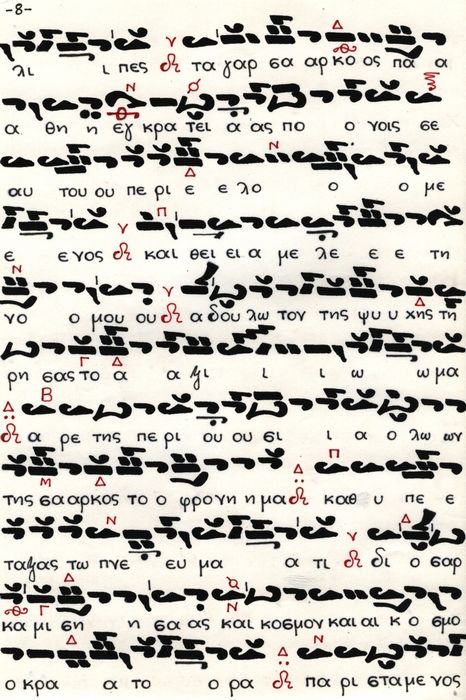 -8-
λι ι πες τα γαρ σα αρ κο ος πα α
α θη η εγ κρα τει α ας πο ο νοις σε
αυ του ου πε ρι ε ε λο ο ο με
ε ενος και θει ει α με λε ε ε τη
νο ο μου ου α δου λω τον της ψυ υ χης τη
ρη σας το α α ξι ι ι ω ω μα
α ρε της πε ρι ου ου σι ι α ο λω ων
της σα αρκος το ο φρονη η μα καθ υ πε ε
ταξας τω πνε ευ μα α τι δι ο σαρ
κα μι ση η σα ας και κοσμον και αι κ ο σμο
ο κρα α το ο ρα πα ρι στα με νος